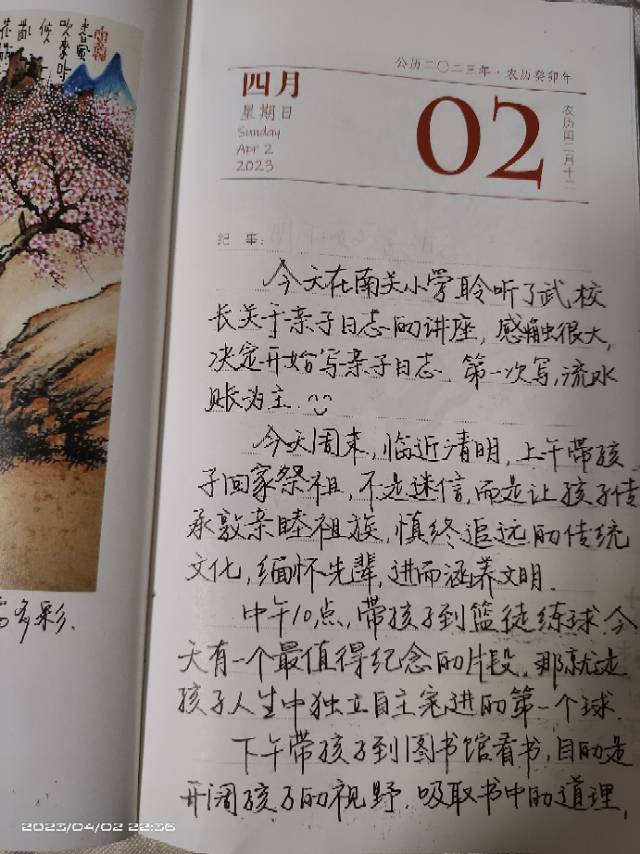 春風
吹來
多彩.
公历二〇二三年·农历癸卯年
四月
星期日
Sunday
Apr 2
2023
02
农历闰二月十二
纪 事:
今天在南关小学聆听了武校
长关于亲子日志的讲座, 感触很大,
决定开始写亲子日志. 第一次写,流水
账为主.
今天周末, 临近清明, 上午带孩
子回家祭祖, 不是迷信, 而是让孩子传
承敦亲睦祖族, 慎终追远的传统
文化, 缅怀先辈, 进而涵养文明.
中午10点, 带孩子到篮徒练球. 今
天有一个最值得纪念的片段, 那就是
孩子人生中独立自主完进的第一个球.
下午带孩子到图书馆看书, 目的是
开阔孩子的视野, 吸取书中的道理,
2023/04/02 22:36